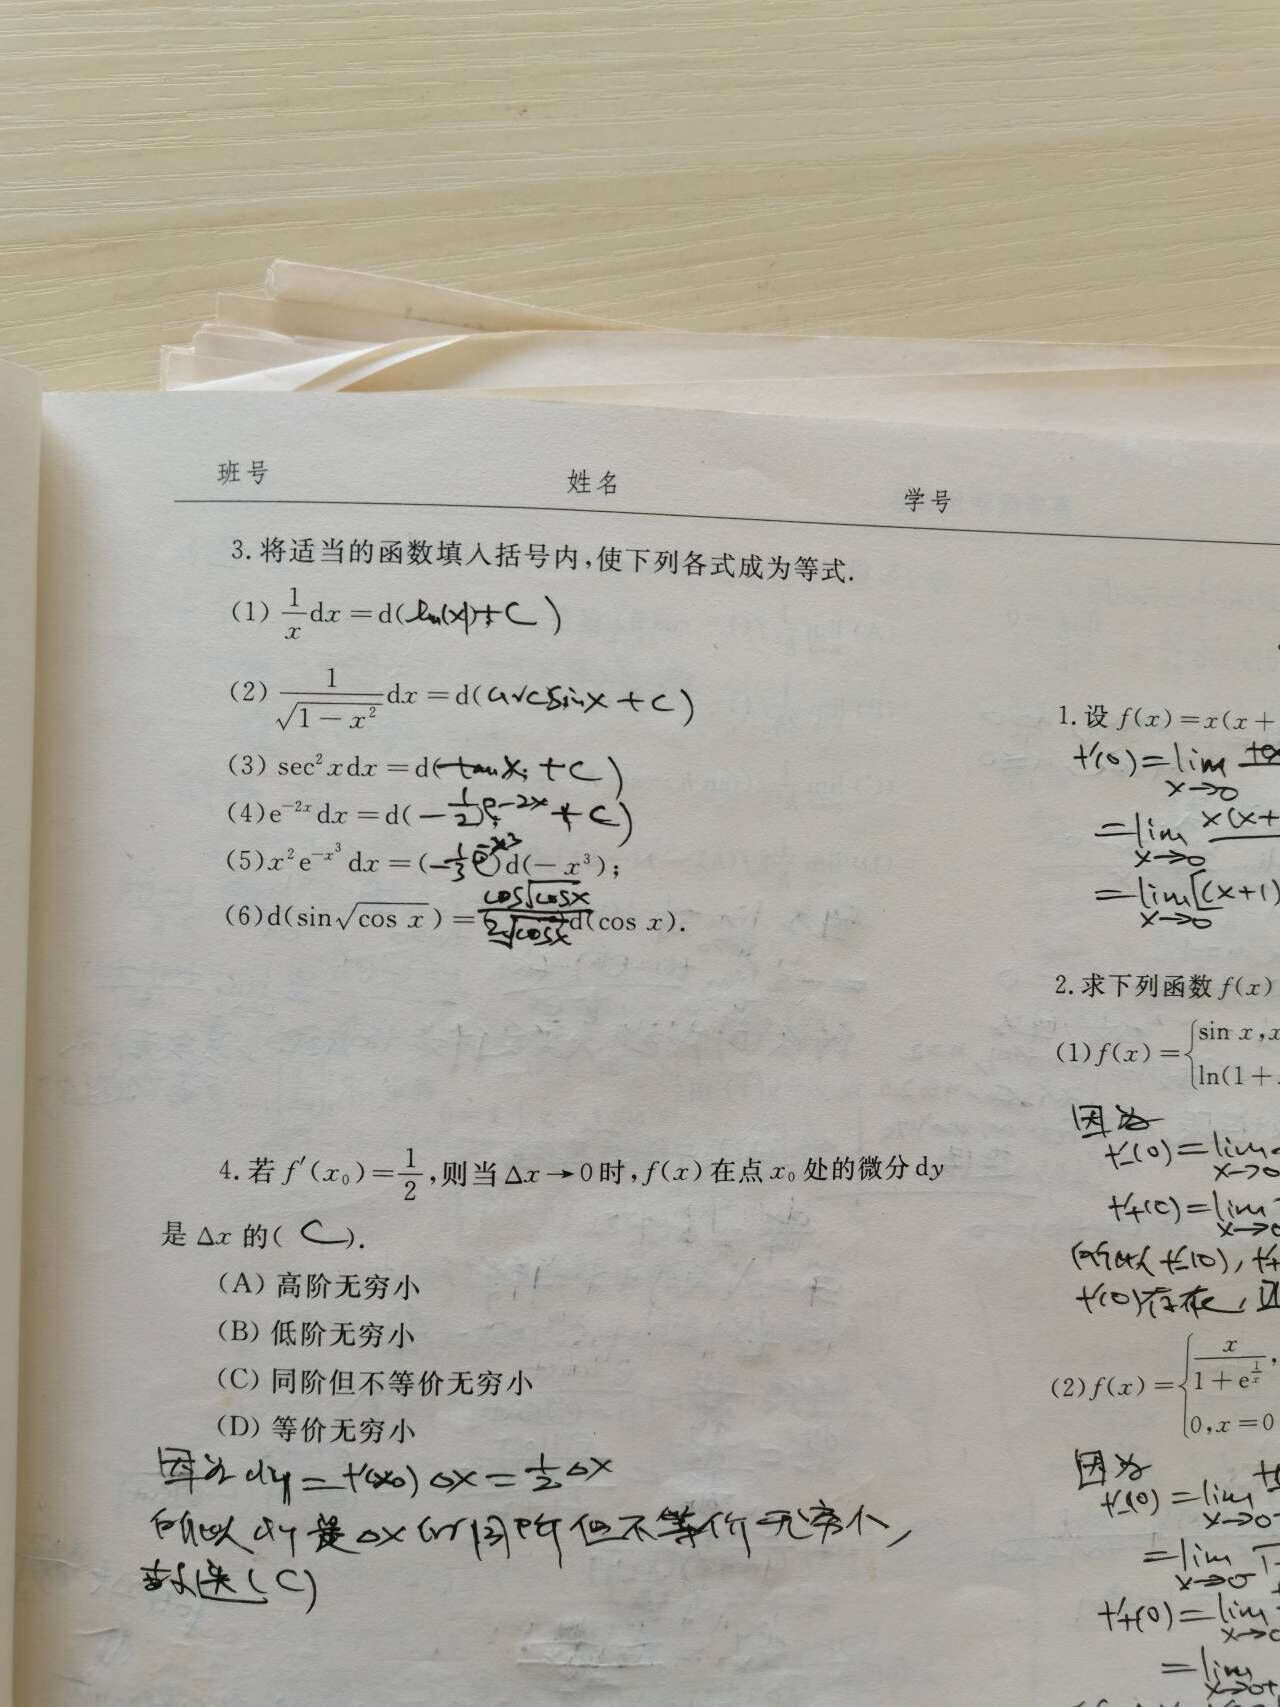 班号 姓名 学号
3.将适当的函数填入括号内,使下列各式成为等式.
(1) 1/x dx=d(ln|x|+C)
(2) 1/√(1-x²) dx=d(arcsinx+C)
(3) sec²xdx=d(tanx+C)
(4)e^(-2x)dx=d(-1/2 e^(-2x)+C)
(5)x²e^(-x³)dx=(-1/3 e^(-x³))d(-x³);
(6)d(sin√(cos x))=cos√(cosx)/(2√(cosx)) d(cos x).
4.若 f′(x₀)=1/2,则当Δx→0时,f(x)在点x₀处的微分dy
是Δx的( C ).
(A) 高阶无穷小
(B) 低阶无穷小
(C) 同阶但不等价无穷小
(D) 等价无穷小
因为dy=f'(x₀)Δx=1/2Δx
所以dy是Δx的同阶但不等价无穷小,
故选(C)
1.设 f(x)=x(x+
f'(0)=lim x→0
=lim x→0 x(x+
=lim x→0 [(x+1)
2.求下列函数 f(x)
(1)f(x)={sin x,x
ln(1+
因为
f'-(0)=lim x→0
f'+(0)=lim x→0
所以f'-(0),f'+
f'(0)存在,且
(2)f(x)={x/(1+e^(1/x)),
0,x=0
因为
f'-(0)=lim x→0-
=lim x→0-
f'+(0)=lim x→0
=lim x→0+